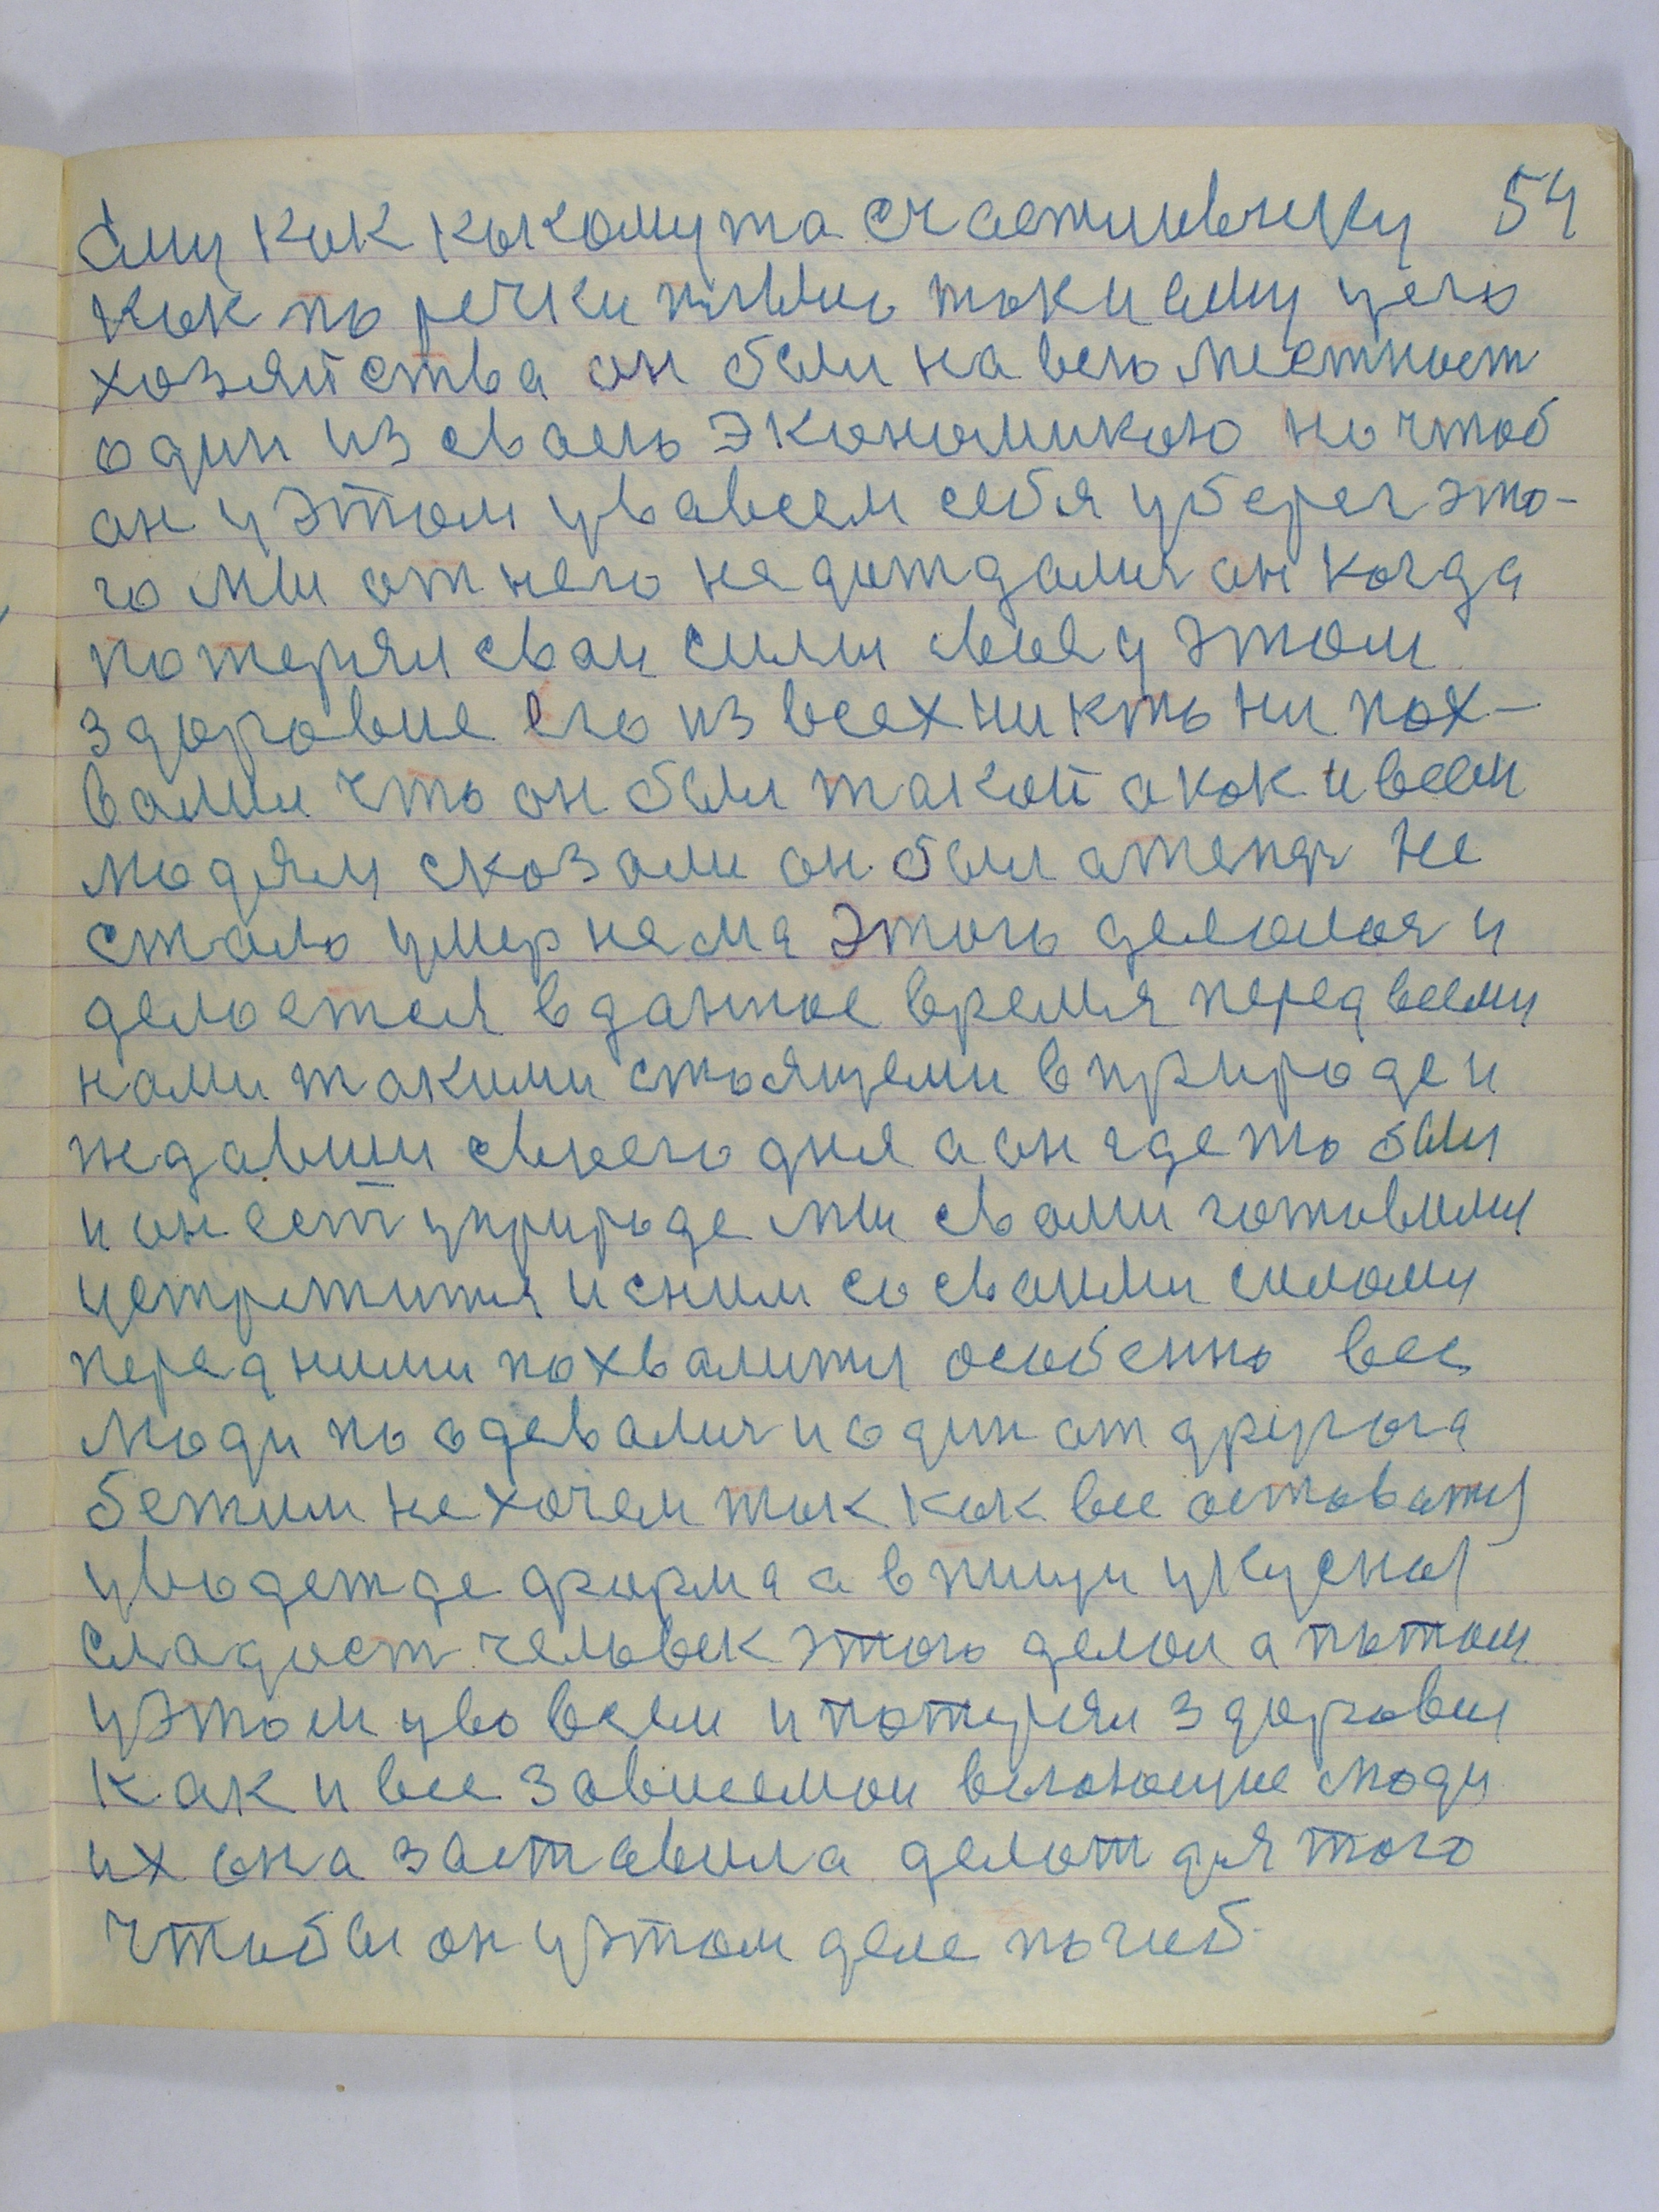 ему как какомута счастливчику 54
как по речки плило так и ему у его
хозяйства он был на всю местност
один из своею экономикою но чтоб
он у этом увавсем себя уберег это-
го ми от него не дождалис он когда
потерял сваи сили свае у этом
здоровие его из всех никто ни пох-
валил что он был такой а как и всем
людям сказали он был а тепер не
стало умер нема этого делалос и
делается в данное время перед всеми
нами такими стоящеми в природе и
ждавши своего дня а он где то был
и он ест у природе ми с вами готовими
устретится и сним со своими силами
перед ними похвалится особенно все
люди по одевалис и один от другога
бежим не хочем так как все оставатся
уводежде форма а в пищи укусная
сладост человек этого делал а потом
у этом уво всем и потерял здоровия
как и все зависемои вслающие люди
их она заставила делат для того
чтобы он у этом деле погиб